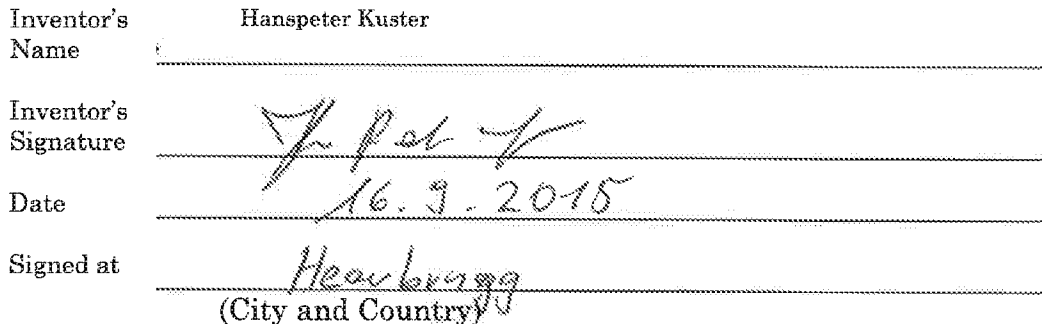 Inventor's Name Hanspeter Kuster
Inventor's Signature
Date 16.9.2015
Signed at Heerbrugg
(City and Country)